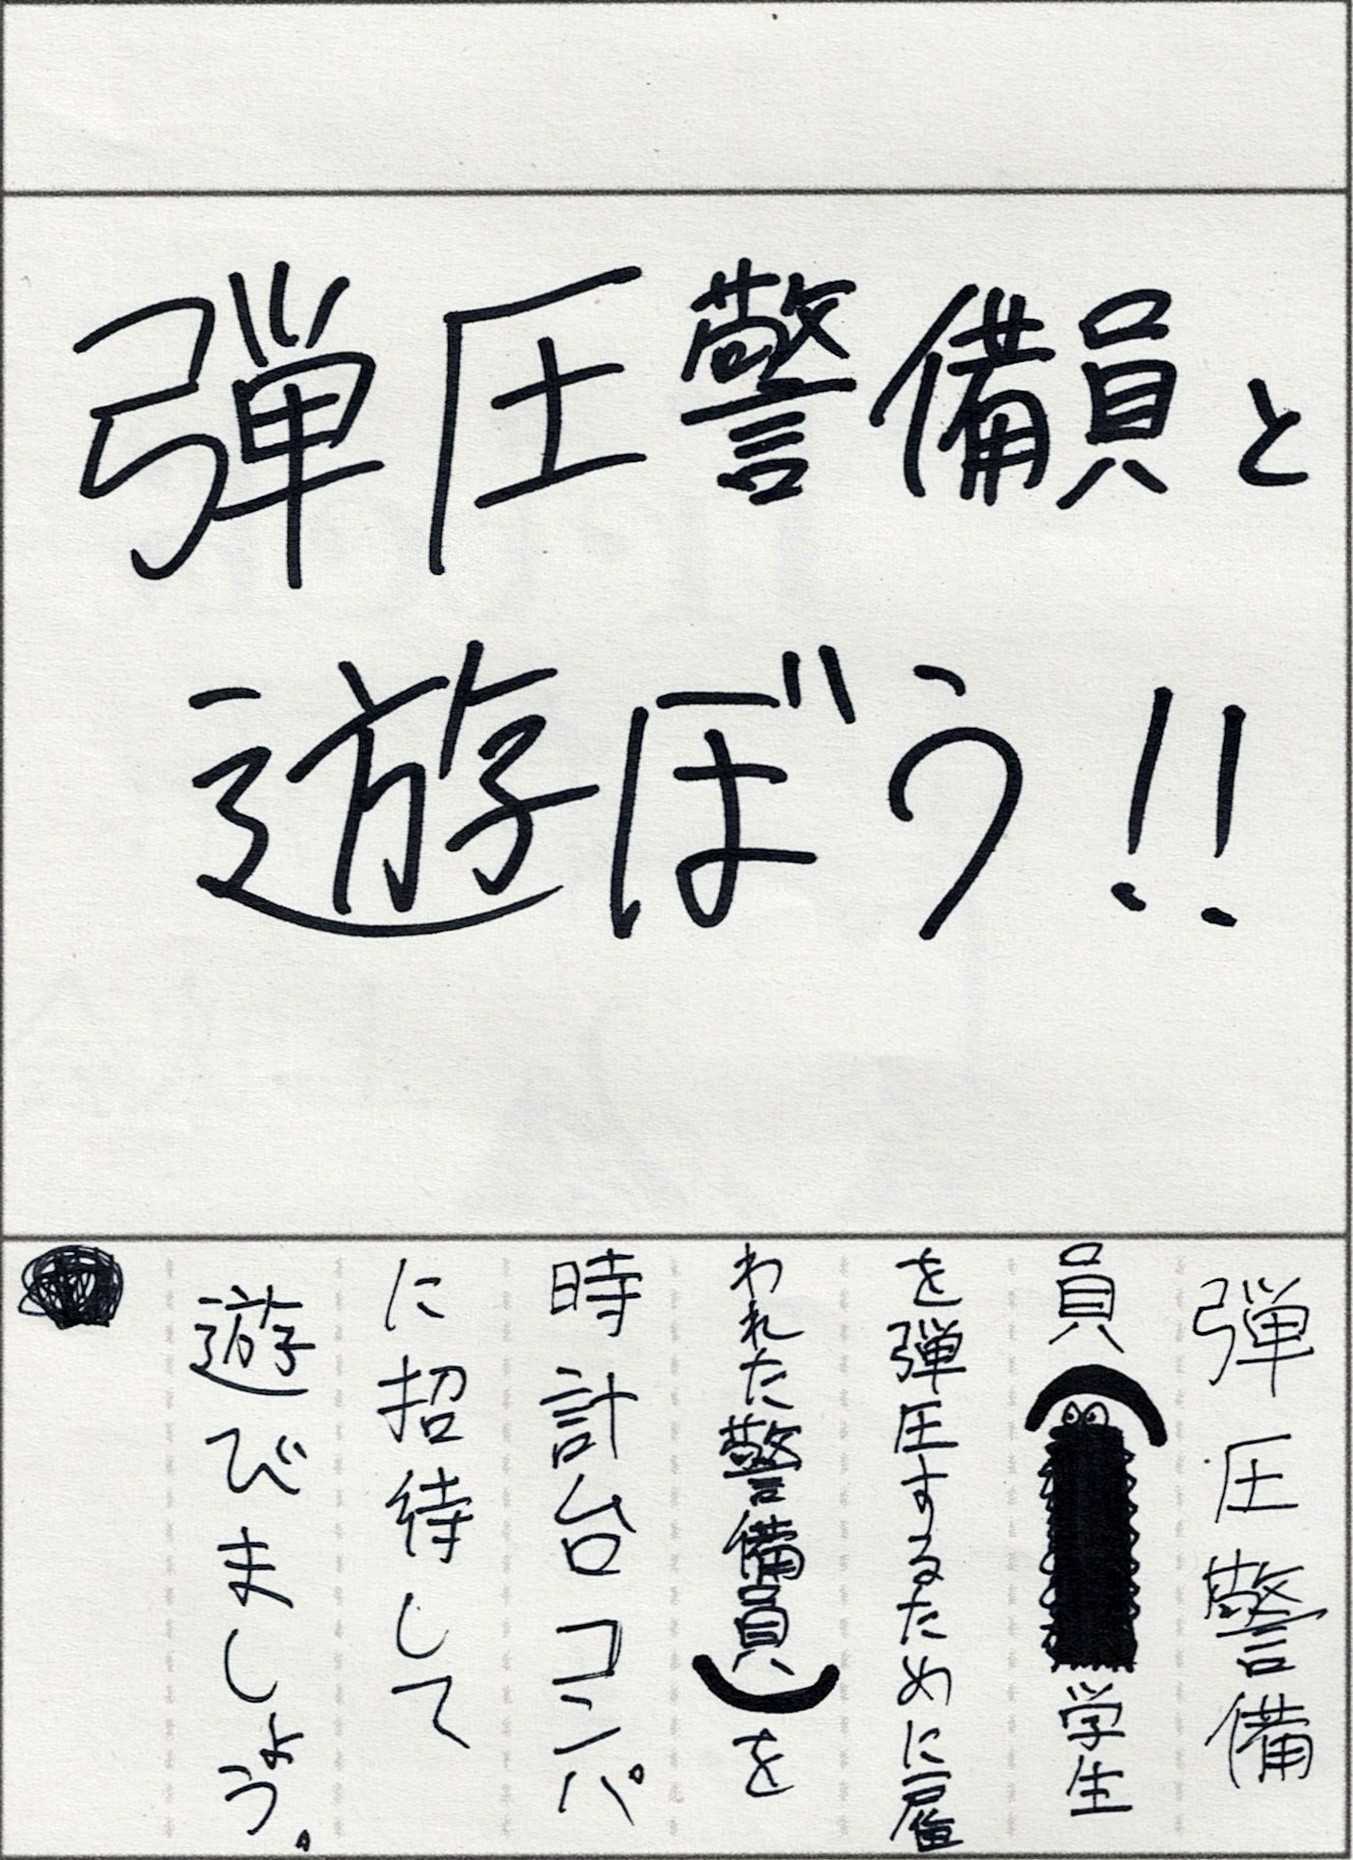 弾圧警備員と
遊ぼう!!
弾圧警備
員(学生
を弾圧するために雇
われた警備員)を
時計台コンパ
に招待して
遊びましょう。